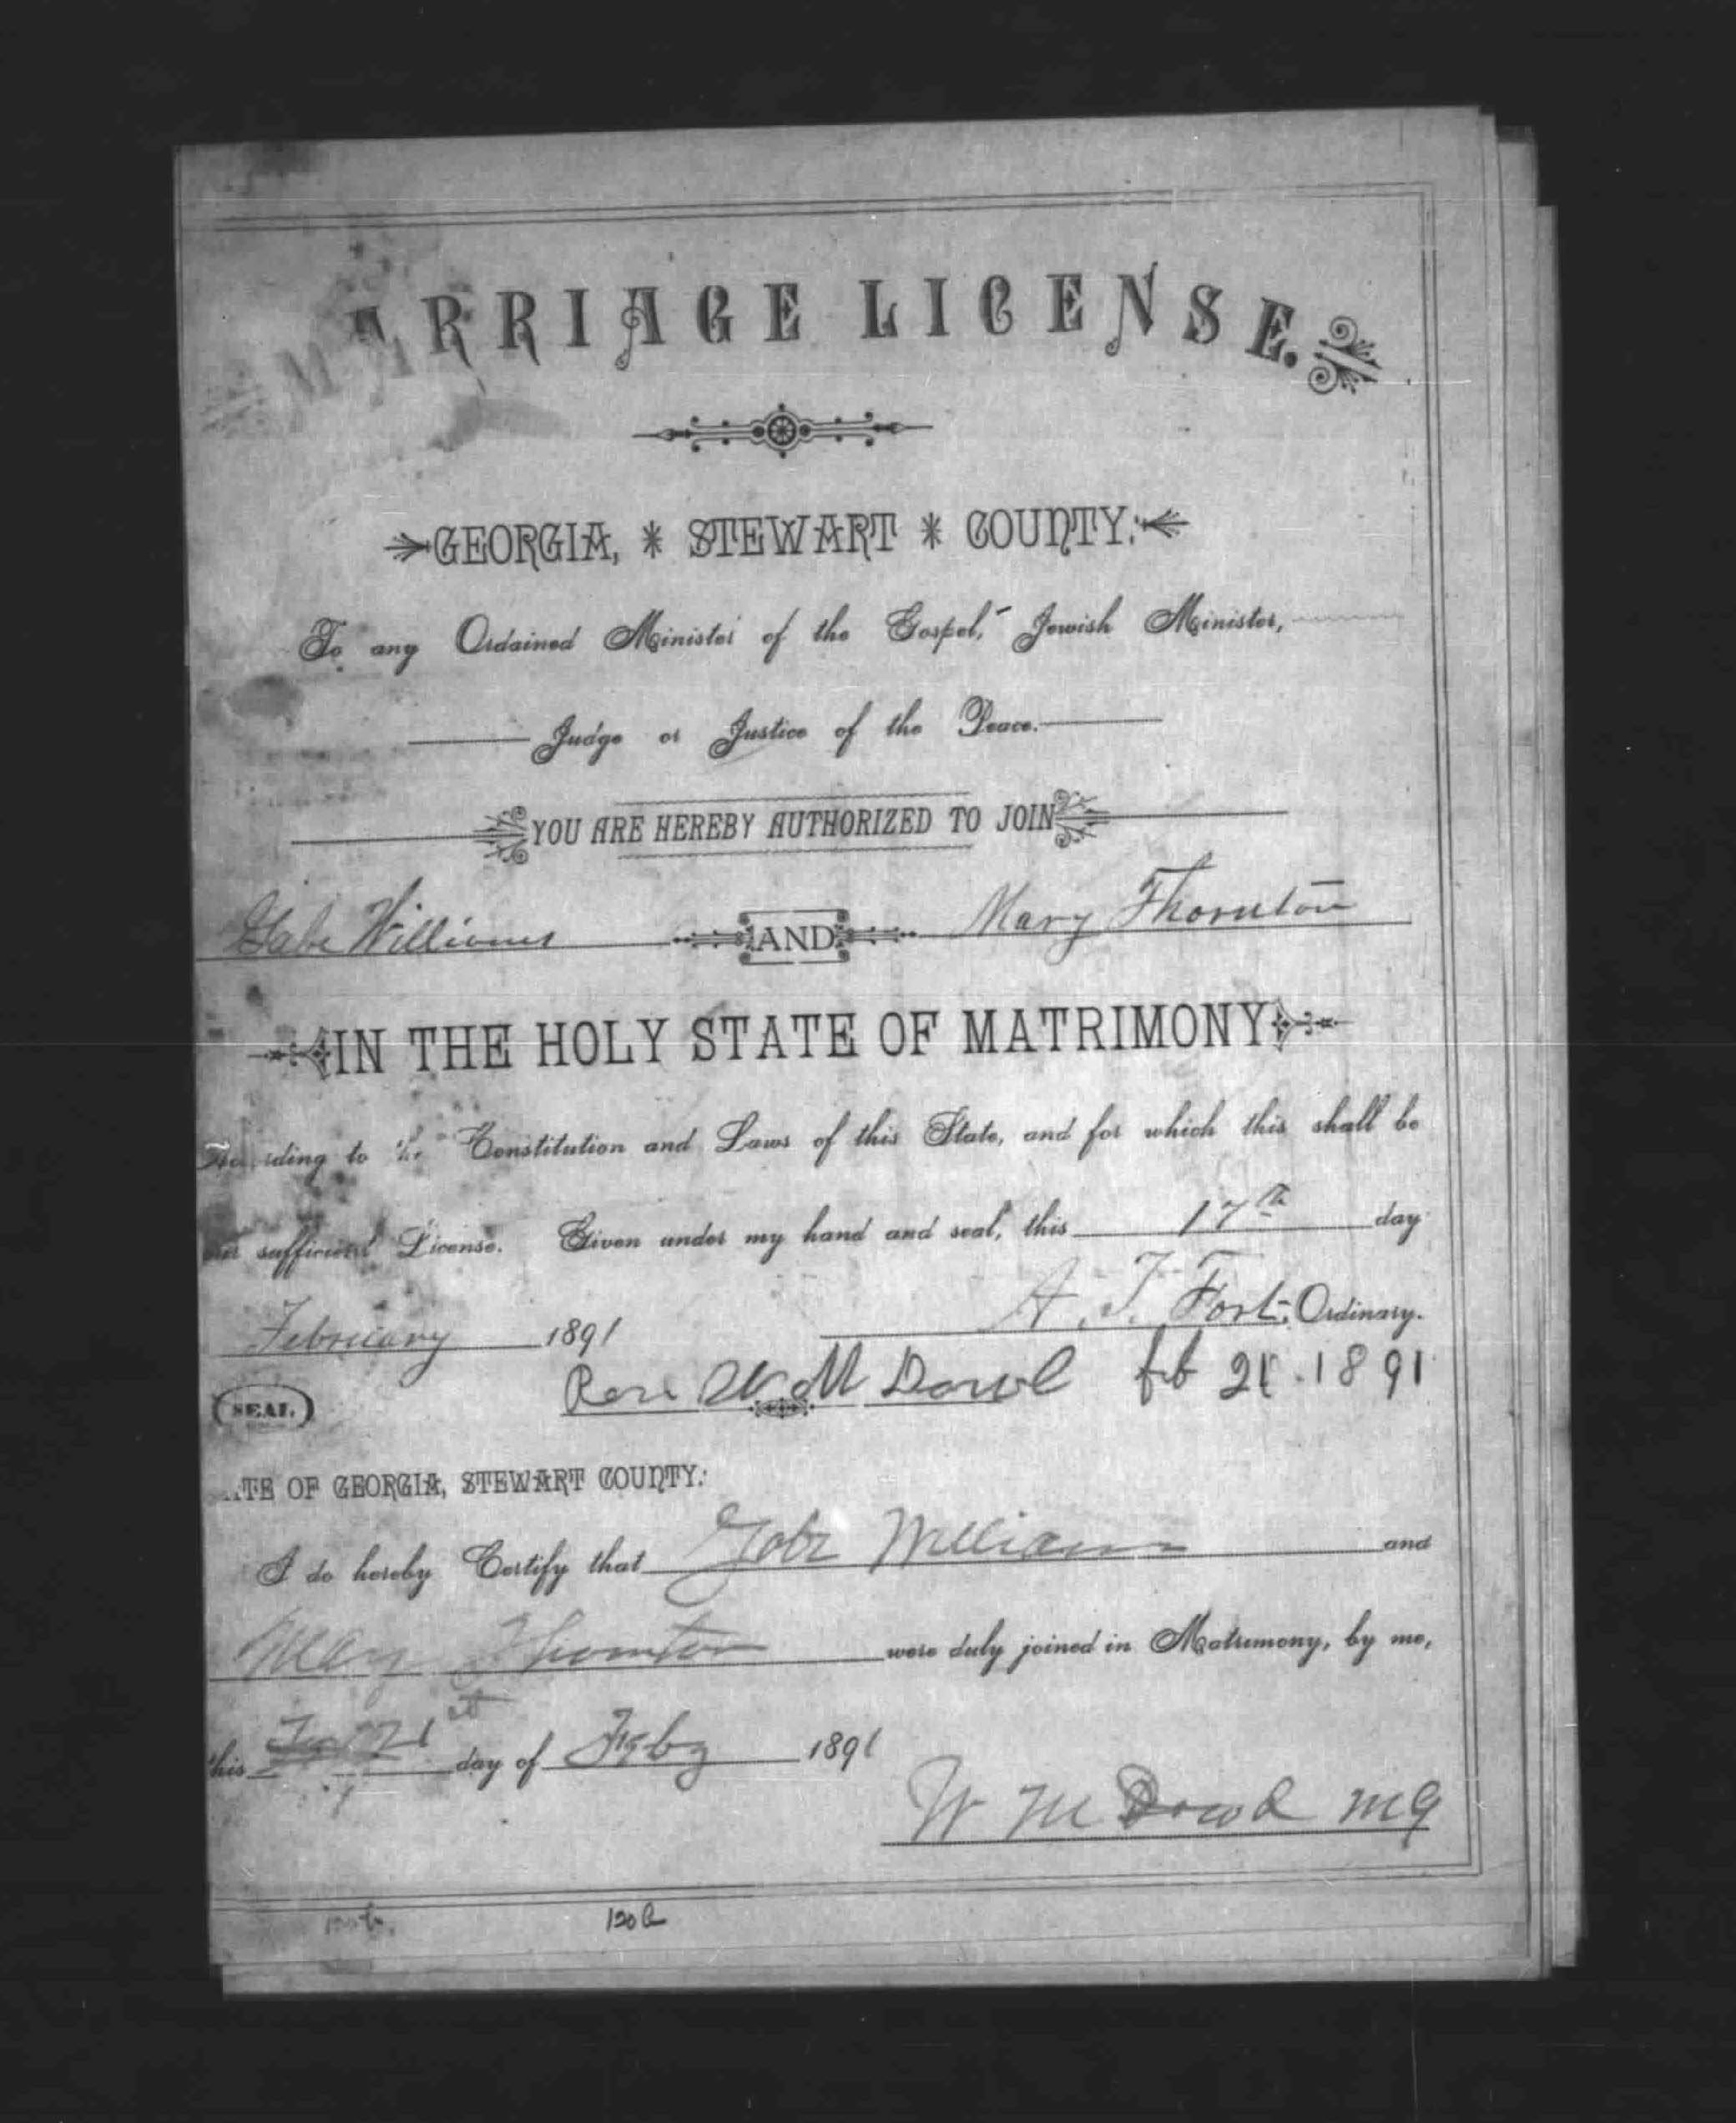 MARRIAGE LICENSE.
GEORGIA, * STEWART * COUNTY:
To any Ordained Minister of the Gospel, Jewish Minister,
Judge or Justice of the Peace.
YOU ARE HEREBY AUTHORIZED TO JOIN
Gabe Williams AND Mary Thornton
IN THE HOLY STATE OF MATRIMONY
According to the Constitution and Laws of this State, and for which this shall be
sufficient License. Given under my hand and seal, this 17th day
February 1891 A. T. Fort, Ordinary.
W. M Dowd feb 21. 1891
(SEAL)
TE OF GEORGIA, STEWART COUNTY:
I do hereby Certify that Gabe Williams and
Mary Thornton were duly joined in Matrimony, by me,
this 21st day of Feby 1891
W M Dowd MG
120 b